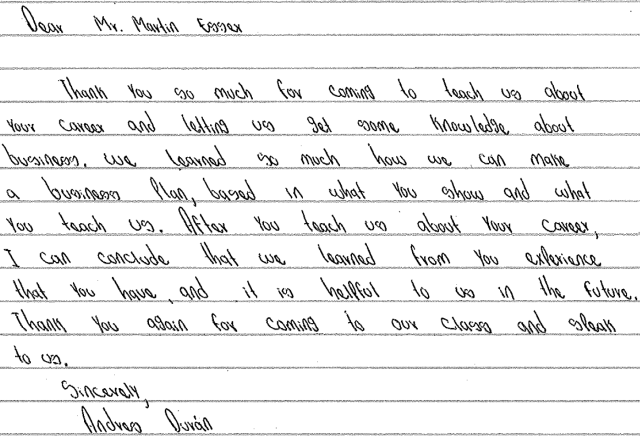 Dear Mr. Martin Esser
Thank you so much for coming to teach us about
your career and letting us get some knowledge about
bussiness. we learned so much how we can make
a bussiness Plan, based in what you show and what
you teach us. After you teach us about your career,
I can conclude that we learned from you experience
that you have, and it is helpful to us in the future.
Thank you again for coming to our classo and speak
to us.
Sincerely,
Andres Durán